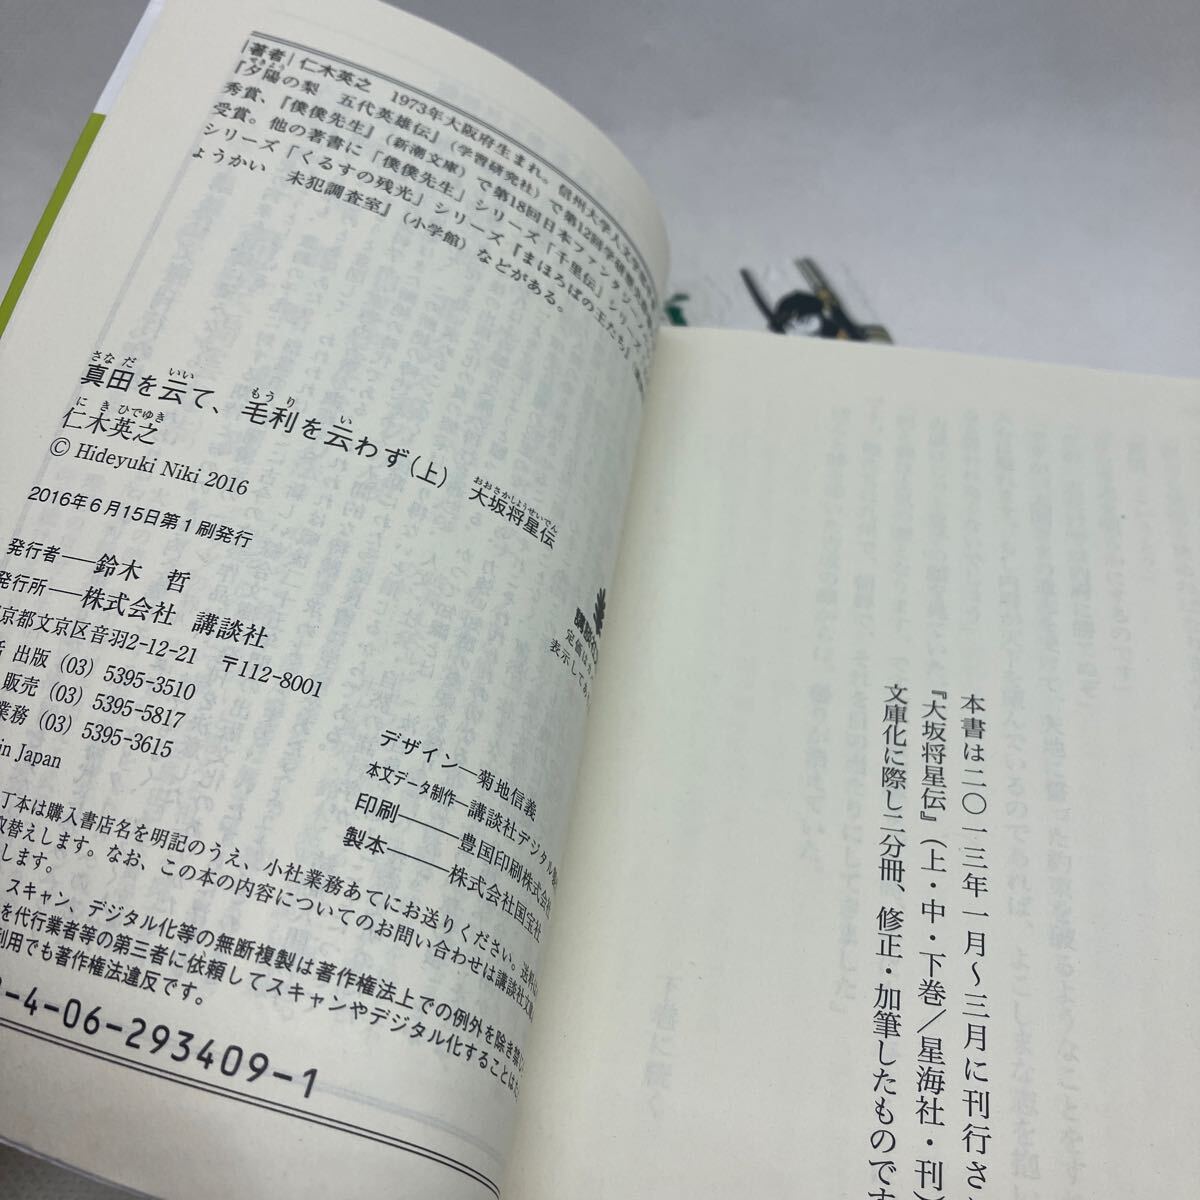 著者 仁木英之 1973年大阪府生まれ。信州大学人文学
『夕陽の梨 五代英雄伝』(学習研究社)で第12回
秀賞、『僕僕先生』(新潮文庫)で第18回日本ファンタジー
受賞。他の著書に「僕僕先生」シリーズ「千里伝」シリーズ
シリーズ「くるすの残光」シリーズ『まほろばの王たち』
ょうかい 未犯調査室』(小学館)などがある。
さなだ いい もうり い
真田を云て、毛利を云わず(上) 大坂将星伝
おおさかしょうせいでん
にき ひでゆき
仁木英之
© Hideyuki Niki 2016
2016年6月15日第1刷発行
発行者――鈴木 哲
発行所――株式会社 講談社
京都文京区音羽2-12-21 〒112-8001
出版 (03) 5395-3510
販売 (03) 5395-5817
業務 (03) 5395-3615
in Japan
定価は
表示して
デザイン―菊地信義
本文データ制作―講談社デジタル
印刷――豊国印刷株式会社
製本――株式会社国宝社
丁本は購入書店名を明記のうえ、小社業務あてにお送りください。送料は
取替えします。なお、この本の内容についてのお問い合わせは講談社文庫
します。
スキャン、デジタル化等の無断複製は著作権法上での例外を除き禁
を代行業者等の第三者に依頼してスキャンやデジタル化することは
利用でも著作権法違反です。
-4-06-293409-1
本書は二〇一三年一月～三月に刊行さ
『大坂将星伝』(上・中・下巻/星海社・刊)
文庫化に際し二分冊、修正・加筆したものです